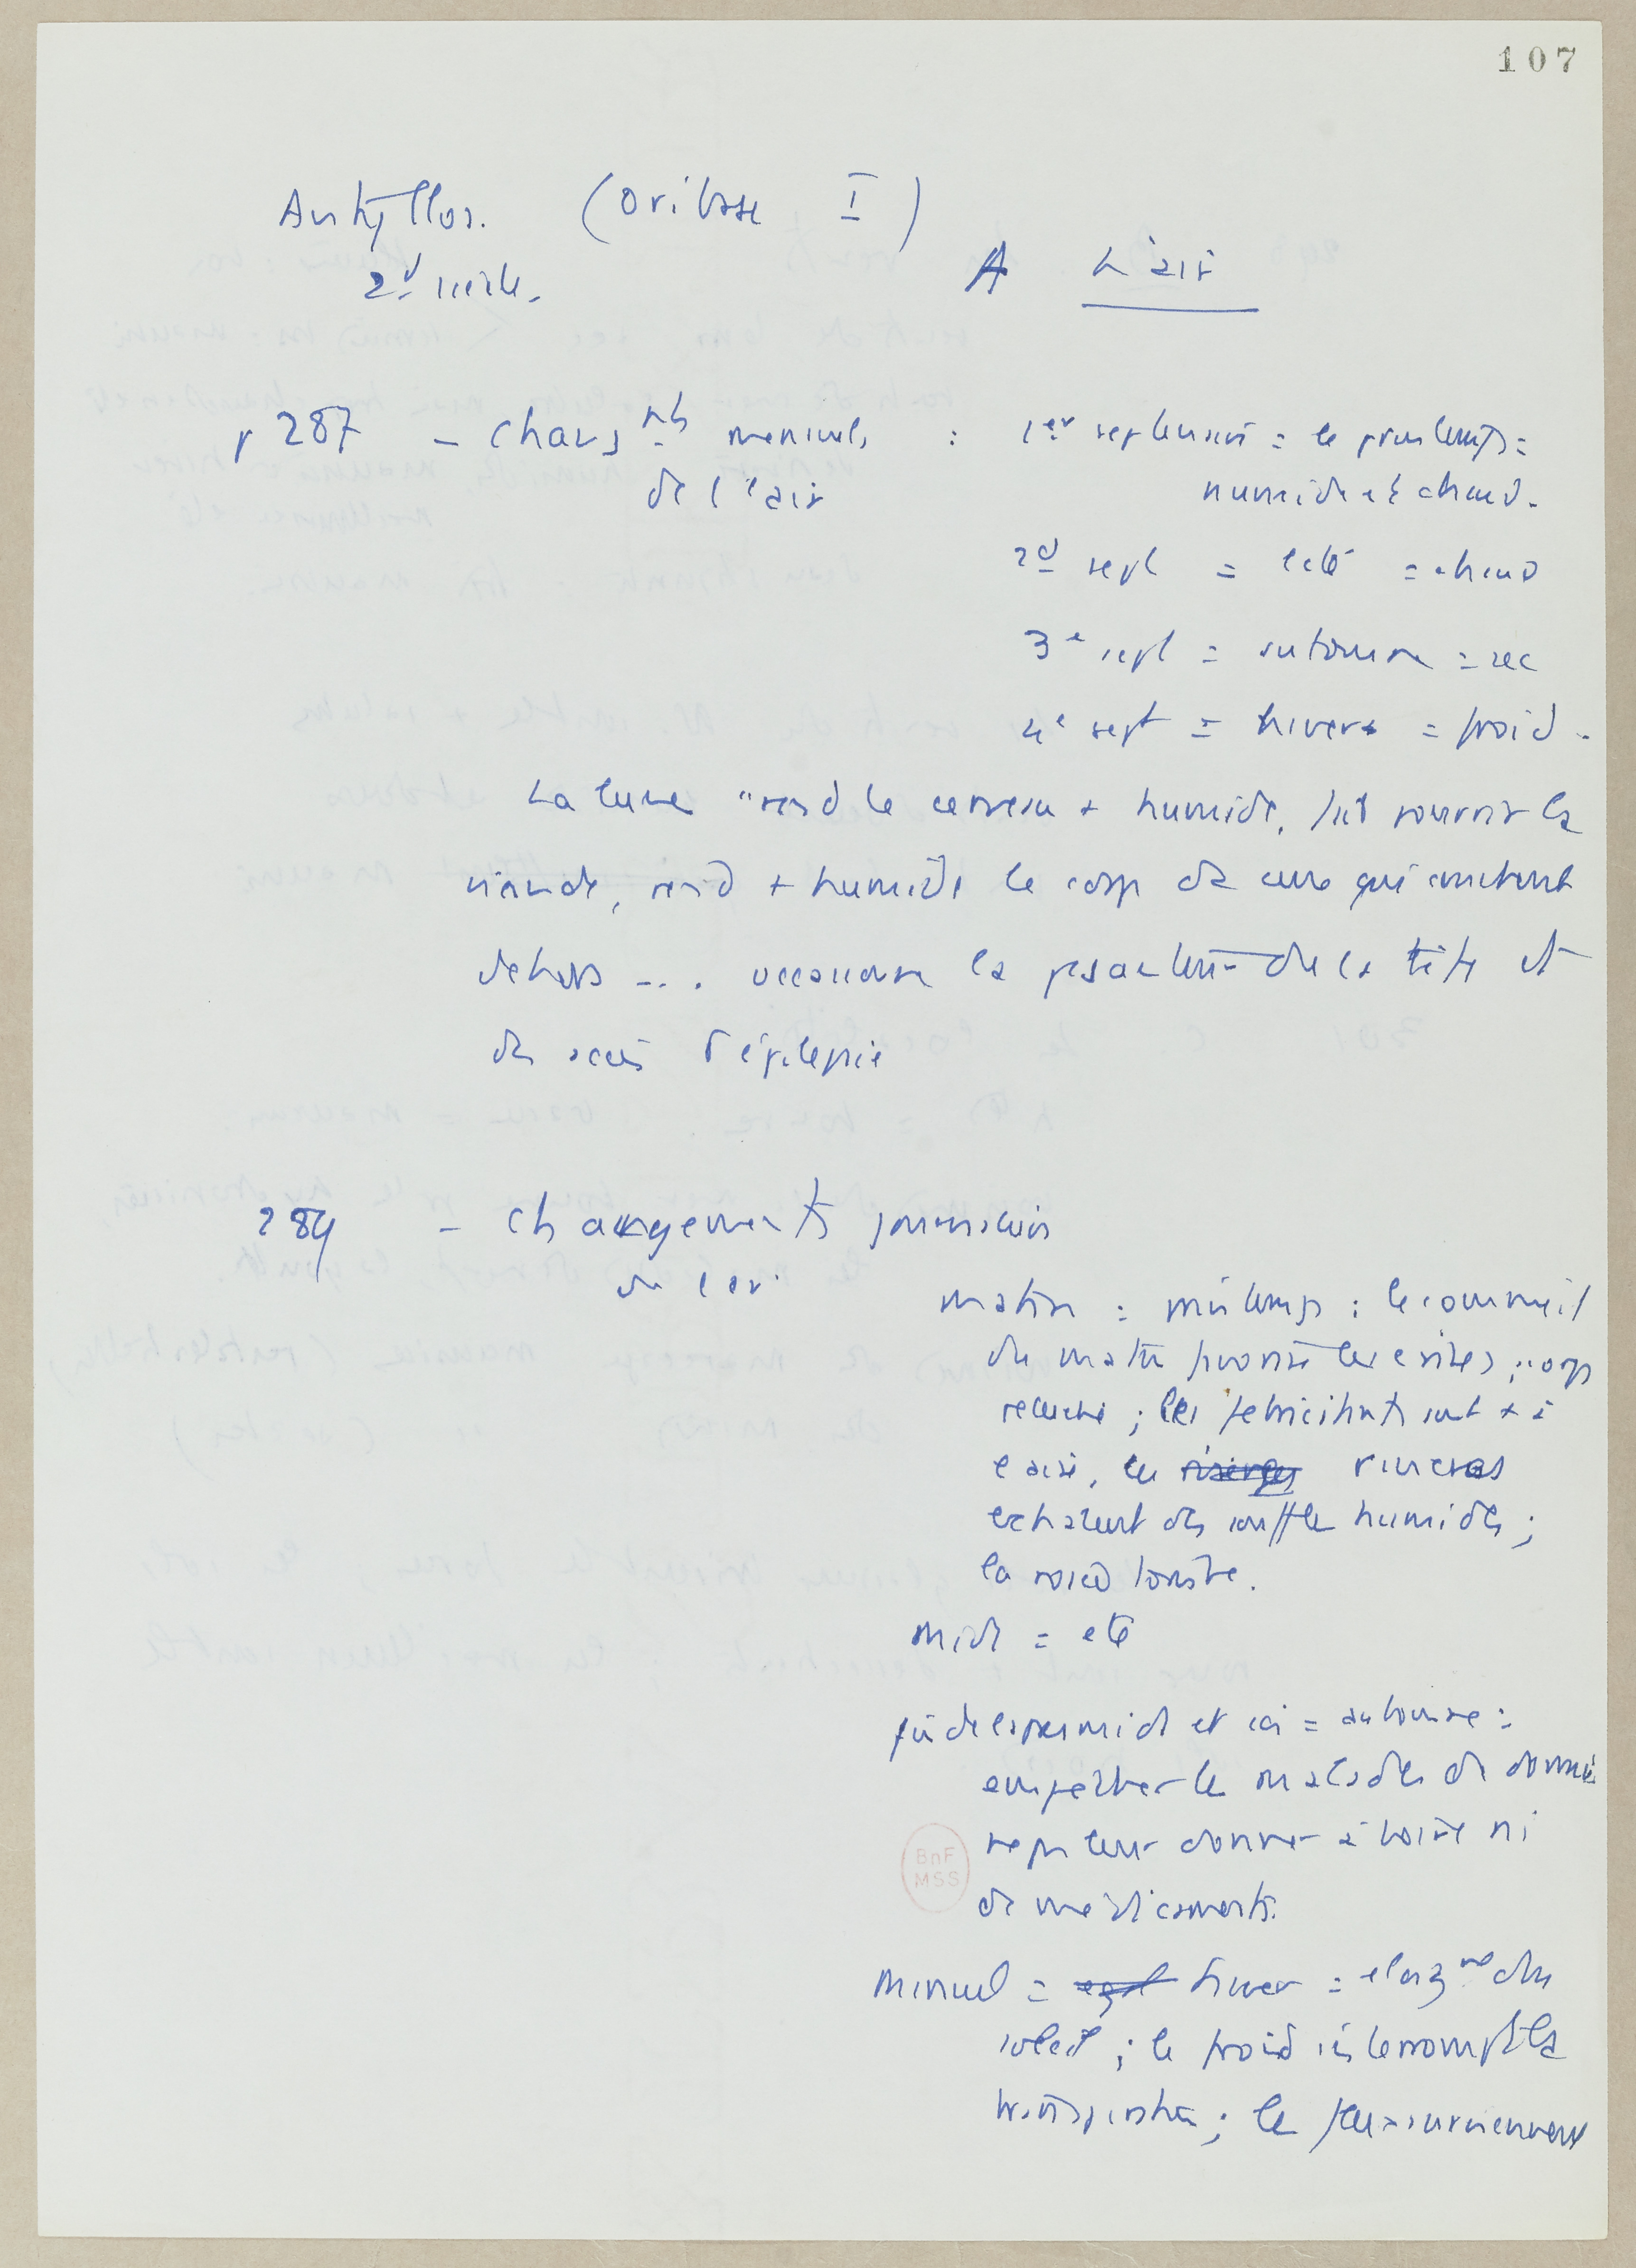 107
Antyllos. (Oribase I)
2d siècle.
A L'air
p 287 - Changnts mensuels : 1er septenaire = le printemps =
de l'air humide et chaud.
2d sept = l'été = chaud
3e sept = automne = sec
4e sept = hiver = froid.
La lune "rend le cerveau + humide, fait pourrir la
viande, rend + humide le corps de ceux qui couchent
dehors ... occasionne la pesanteur de la tête et
des accès d'épilepsie
289 - Changements journaliers
de l'air
matin : printemps : le sommeil
du matin favorise les crises ; corps
relaché ; les febricitants sont + à
l'aise, les rivieres
exhalent des souffles humides ;
la rosée tombe.
midi = eté
fin de l'apres midi et soir = automne =
empecher les malades de dormir
ne pas leur donner à boire ni
de médicaments.
Minuit = hiver = eloignt du
soleil ; le froid interrompt la
transpiration ; les surviennent
BnF
MSS